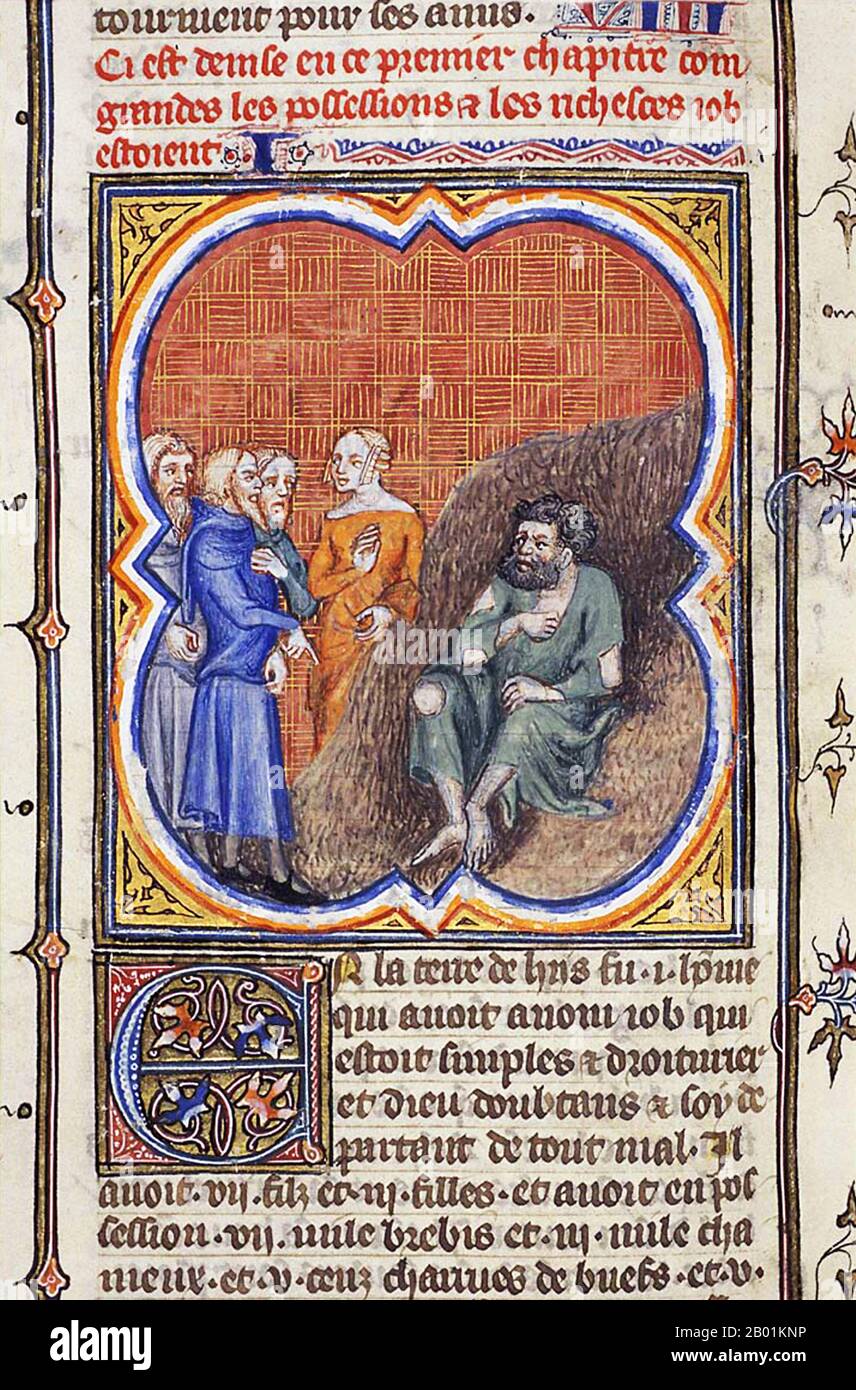 tourment pour ses amis.
Ci est demse en ce premier chapitre com
grandes les possessions & les richesces iob
estoient.
En la terre de hus fu .i. home
qui auoit a nom iob qui
estoit simples & droiturier
et dieu doubtans & soy de
partant de tout mal. Il
auoit .vii. filz et .iii. filles. et auoit en pos
session .vii. mile brebis et .iii. mile cha
meux. et .v. cenz charrues de buefs. et .v.
alamy
Image ID: 2B01KNP
www.alamy.com